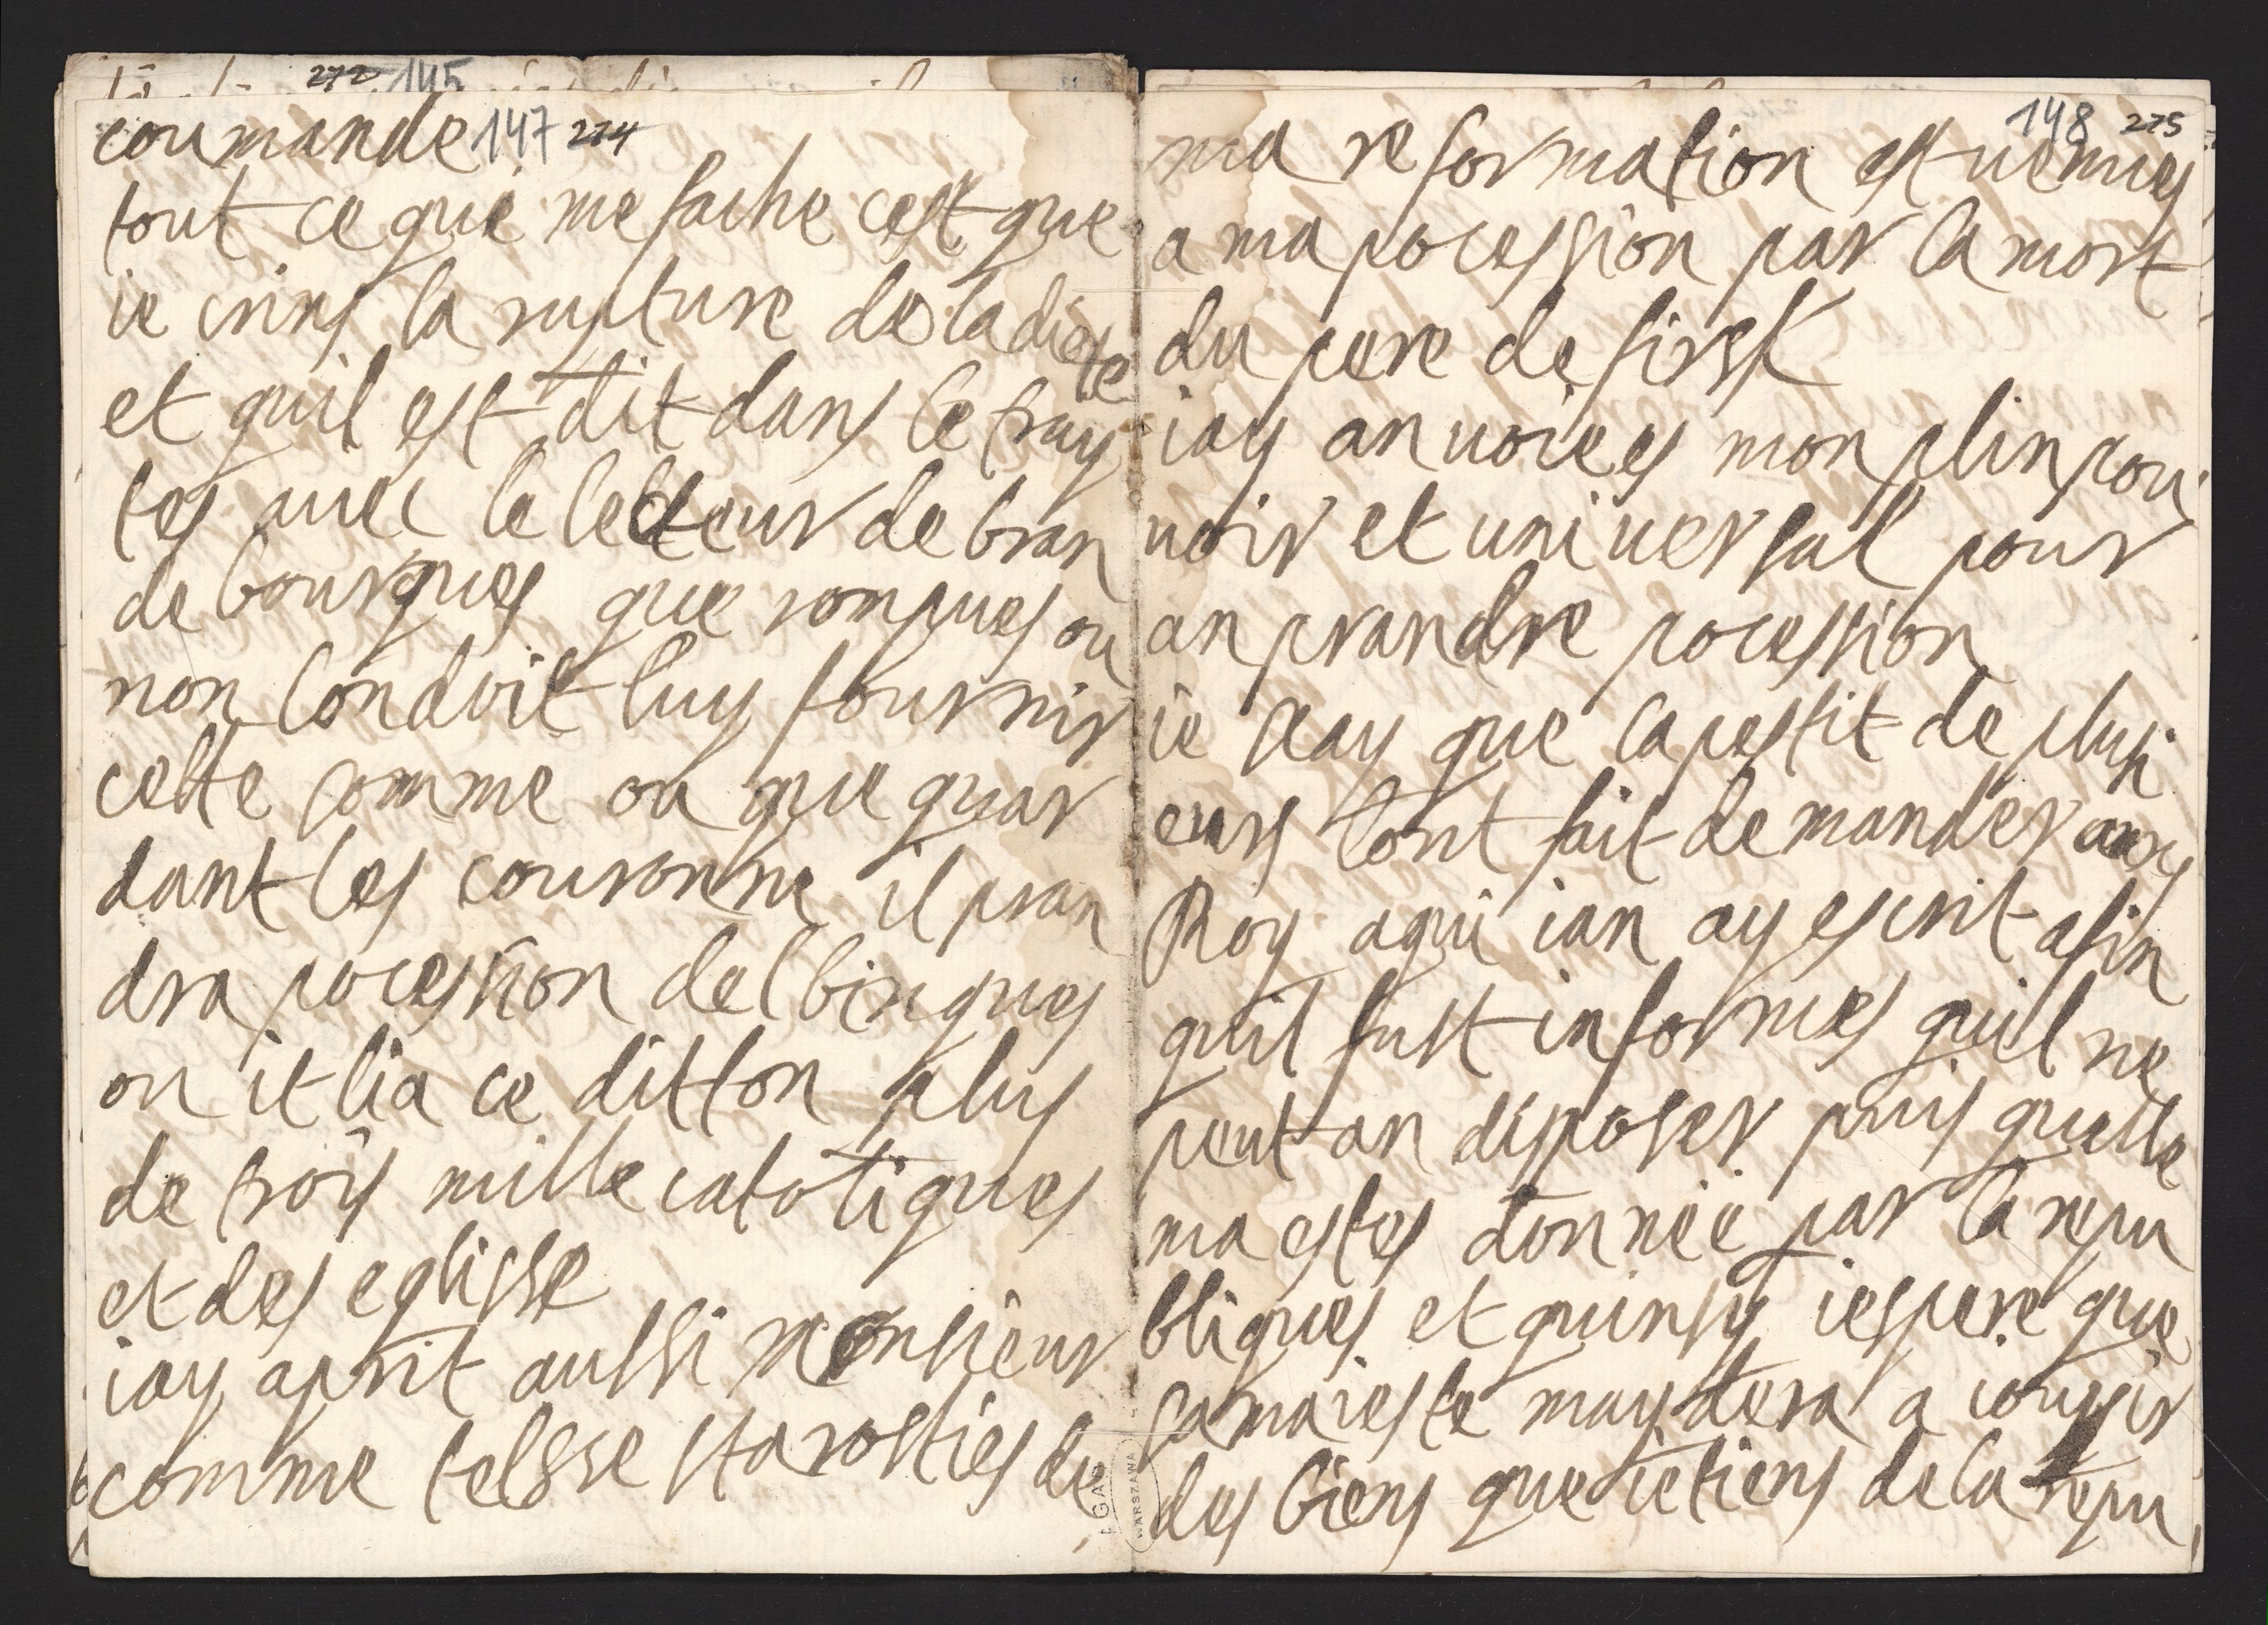 272 145
coumande 147 274
tout ce qui me fache cest que
ie crins la rupture de la diete
et quil est dit dans le tray
tes avec le lecteur de bran
de bourgues que rompues ou
non londoit luy fournir
cette somme ou que guar
dant les couronne il pran
dra pocession delbingues
ou it lia ce ditton plus
de troîs mille catotiques
et des eglisse
iay aprit aussi monsieur
comme telsse starosties de
148 275
ma reformation est uenues
a ma pocession par la mort
du pere de firsk
iay anuoiees mon plin pou
uoir et uniuersal pour
an prandre pocession
ie scay que lapestit de plusi
eurs lont fait demander aux
Roy a qui ian ay escrit afin
quil fust informes quil ne
peut an disposer puis quelle
ma estes donnée par la repu
bliques et quinsy iespere que
sa maieste maydera a iouyir
des biens que ie tiens de la repu
AGAD
WARSZAWA